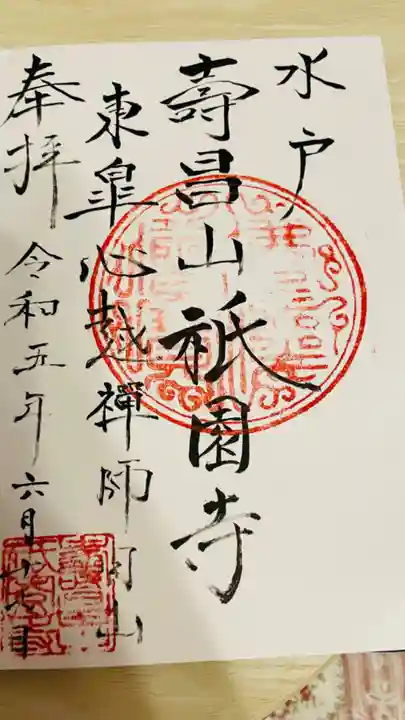 水戸
壽昌山祇園寺
東皐心越禪師開山
奉拝
令和五年六月十六日